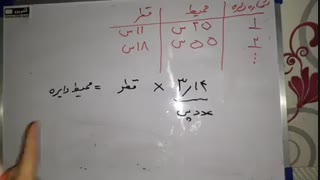 شماره دایره محیط قطر
۱ ۳۵ س ۱۱ س
۲ ۵۵ س ۱۸ س
⋮
محیط دایره = قطر × ۳٫۱۴
عدد پی